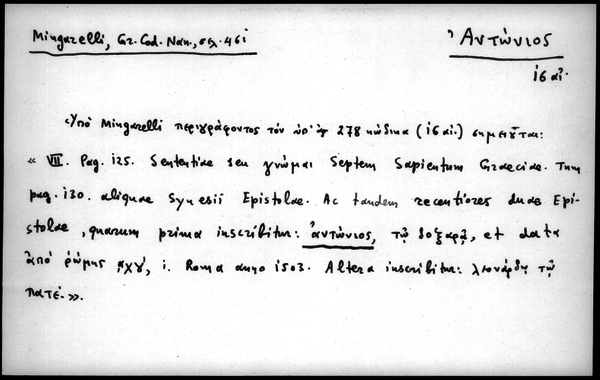 Mingarelli, Gr. Cod. Nan., σελ. 461
Ἀντώνιος
16 αἰ.
Ὑπὸ Mingarelli περιγράφοντος τὸν ὑπ' ἀρ. 278 κώδικα (16 αἰ.) σημειοῦται:
« VII. Pag. 125. Sententiae seu γνῶμαι Septem Sapientum Graeciae. Tum
pag. 130. aliquae Synesii Epistolae. Ac tandem recentiores duae Epi-
stolae, quarum prima inscribitur: ἀντώνιος, τῷ δοξαρᾷ, et data
ἀπὸ ῥώμης αχγ', i. Roma anno 1503. Altera inscribitur: λεονάρδῳ τῷ
πατέ. ».